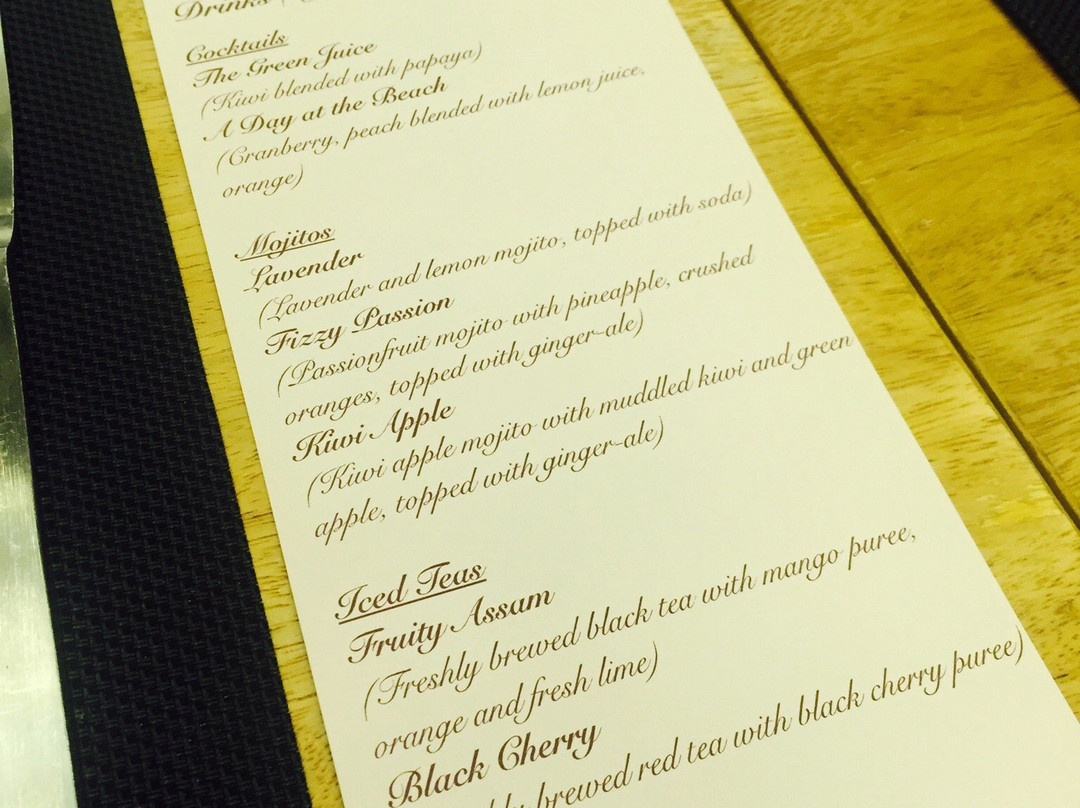 Drinks
Cocktails
The Green Juice
(Kiwi blended with papaya)
A Day at the Beach
(Cranberry, peach blended with lemon juice,
orange)
Mojitos
Lavender
(Lavender and lemon mojito, topped with soda)
Fizzy Passion
(Passionfruit mojito with pineapple, crushed
oranges, topped with ginger-ale)
Kiwi Apple
(Kiwi apple mojito with muddled kiwi and green
apple, topped with ginger-ale)
Iced Teas
Fruity Assam
(Freshly brewed black tea with mango puree,
orange and fresh lime)
Black Cherry
brewed red tea with black cherry puree)